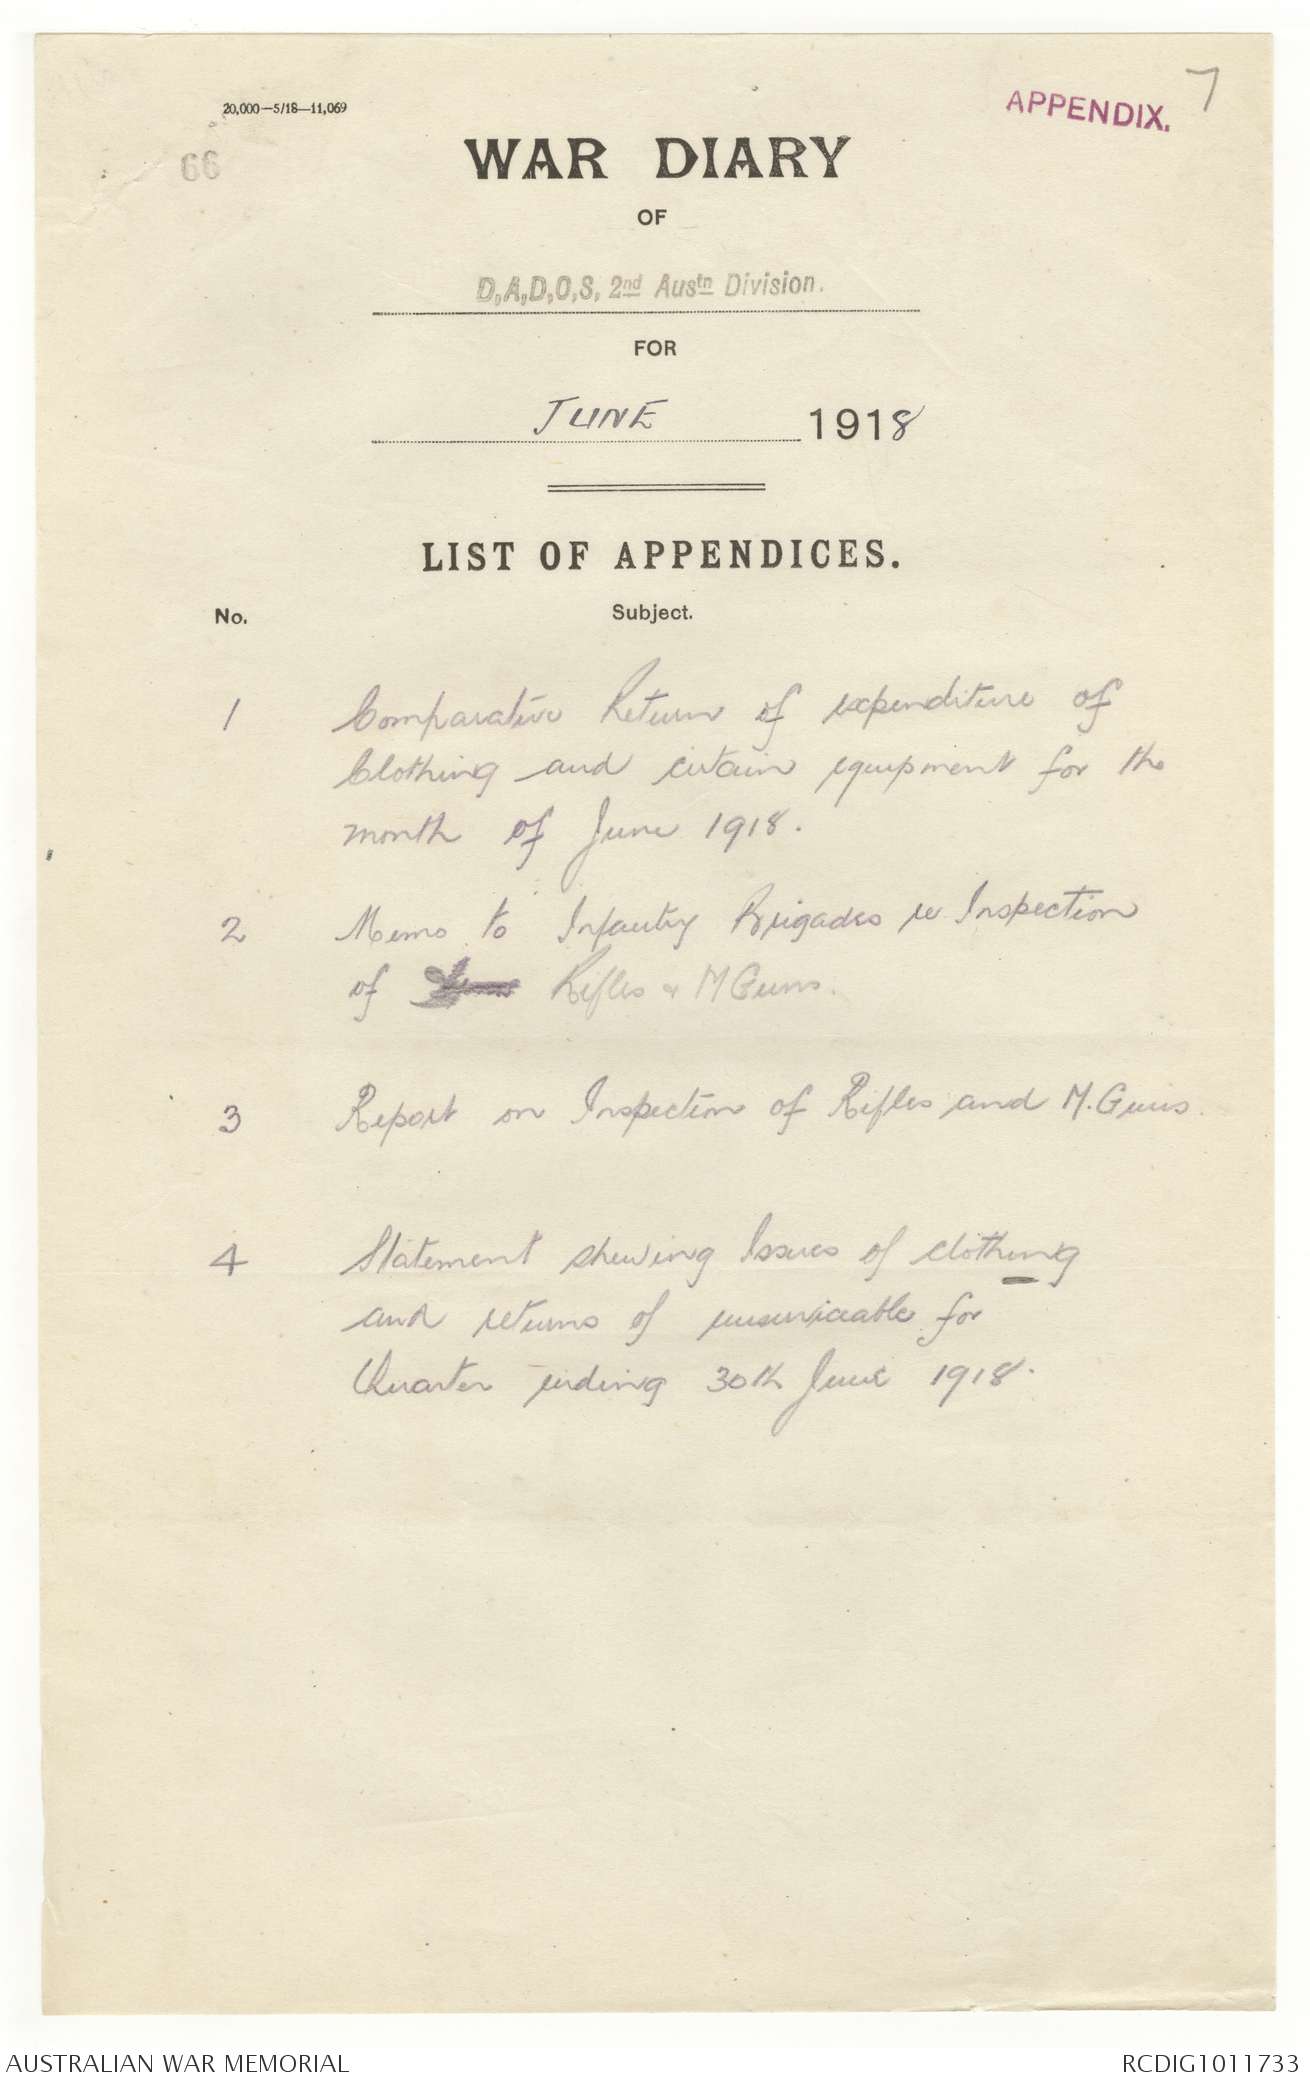 20,000—5/18—11,069
APPENDIX. 7
66
WAR DIARY
OF
D,A,D,O,S, 2nd Austn Division.
FOR
JUNE 1918
LIST OF APPENDICES.
No. Subject.
1 Comparative Return of expenditure of
Clothing and certain equipment for the
month of June 1918.
2 Memo to Infantry Brigades re Inspection
of Rifles & M Guns.
3 Report on Inspection of Rifles and M. Guns.
4 Statement shewing Issues of clothing
and returns of unserviceable for
Quarter ending 30th June 1918.
AUSTRALIAN WAR MEMORIAL
RCDIG1011733